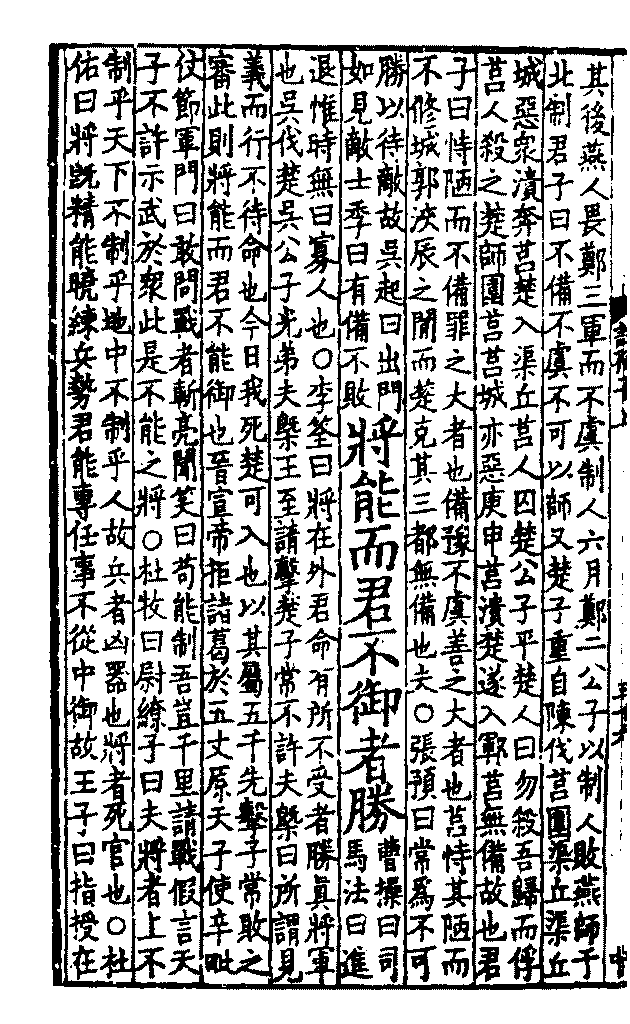 其後燕人畏鄭三軍而不虞制人六月鄭二公子以制人敗燕師于
北制君子曰不備不虞不可以師又楚子重自陳伐莒圍渠丘渠丘
城惡衆潰奔莒楚入渠丘莒人囚楚公子平楚人曰勿殺吾歸而俘
莒人殺之楚師圍莒莒城亦惡庚申莒潰楚遂入鄆莒無備故也君
子曰恃陋而不備罪之大者也備豫不虞善之大者也莒恃其陋而
不修城郭浹辰之間而楚克其三都無備也夫○張預曰常爲不可
勝以待敵故吳起曰出門
如見敵士季曰有備不敗
將能而君不御者勝
曹操曰司
馬法曰進
退惟時無曰寡人也○李筌曰將在外君命有所不受者勝真將軍
也吳伐楚吳公子光弟夫槩王至請擊楚子常不許夫槩曰所謂見
義而行不待命也今日我死楚可入也以其屬五千先擊子常敗之
審此則將能而君不能御也晉宣帝拒諸葛於五丈原天子使辛毗
仗節軍門曰敢問戰者斬亮聞笑曰苟能制吾豈千里請戰假言天
子不許示武於衆此是不能之將○杜牧曰尉繚子曰夫將者上不
制乎天下不制乎地中不制乎人故兵者凶器也將者死官也○杜
佑曰將旣精能曉練兵勢君能專任事不從中御故王子曰指授在